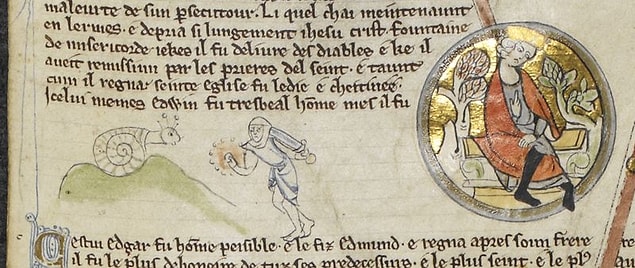 maleurte de sun persecutour. Li quel chai meintenaunt
en lermes. e depria si lungement ihesu crist. fountaine
de misericorde iekes il fu delivre des diables. e ke il
aveit remissiun par les prieres del seint. e taunt
cum il regna seinte eglise fu ledie e chettivee.
Icelui memes edwin fu tresbeal home mes il fu
Cestui Edgar fu home peisible. e le fiz Edmund. e regna apres soun frere
il fu le plus de honeire de tuz ses predecessurs. e le plus seint. e le plus